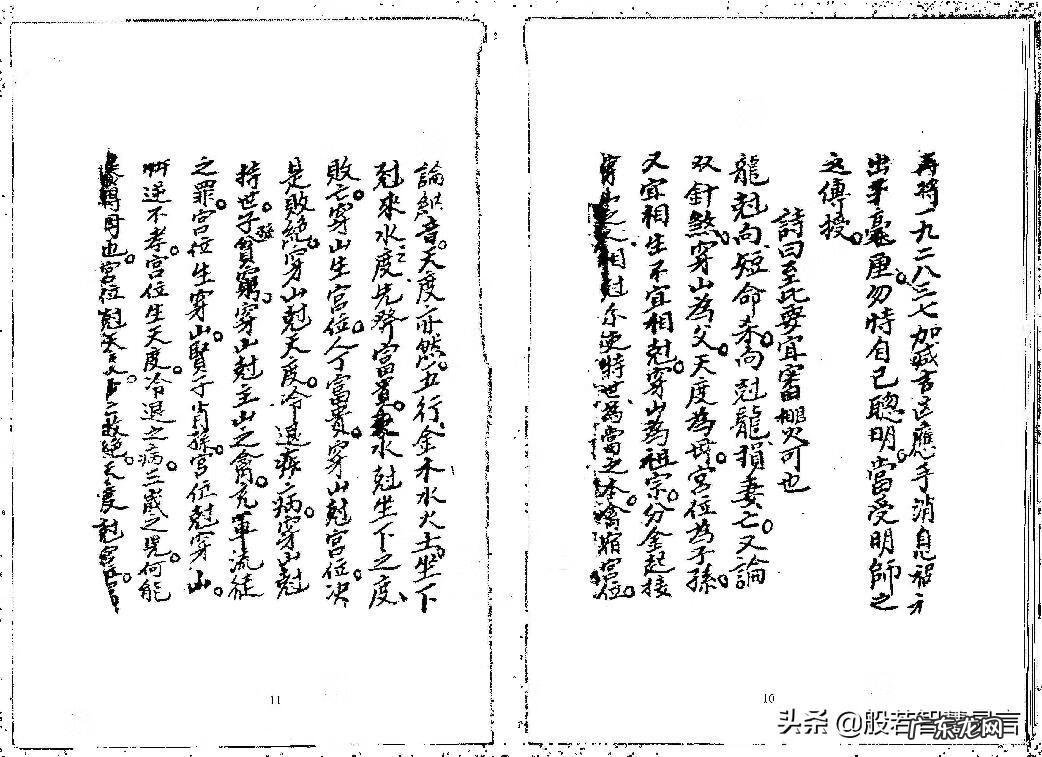 再將一九二八三七加臧吉凶應手消息秘方
出于毫厘。勿恃自己聰明。當受明師之
之傳授。
詩曰至此要宜審
龍尅向短命杀。向尅龍損妻亡。又論
双針煞。穿山為父。天度為母。宮位為子孫。
又宜相生不宜相尅。穿山為祖宗。分金起接
相尅
持世為當之本
宮位。
10
論納音。天度亦然。五行金木水火土。坐下
尅來水度先發富貴。来水尅坐下之度
敗亡。穿山生宮位。人丁富貴。穿山尅宮位。決
是敗絕。穿山尅天度。冷退疾病。穿山尅
持世。子發貧窮。穿山尅主山之禽。充軍流徒
之罪。宮位生穿山。賢子肖孫。宮位尅穿山。
忤逆不孝。宮位生天度。冷退之病。三歲之児。何能
母也。宮位尅天
敗絕。天度尅宮位
11
头条 @般若智慧
广东龙网